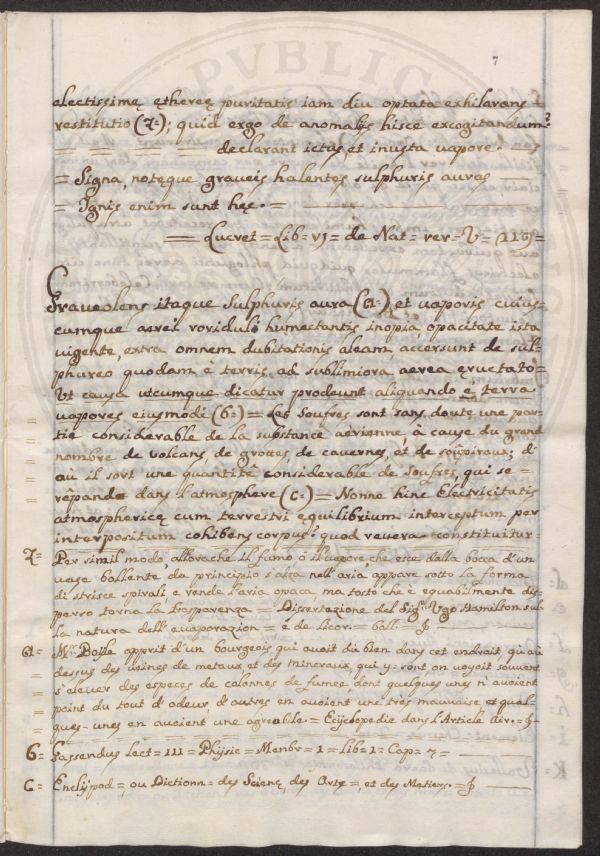 PVBLIC
7
electissimę ęthereę puritatis iam diu optata exhilarans
restitutio (7=); quid ergo de anomalijs hisce excogitandum?
= = = = declarant ictus, et inusta vapore.
= Signa, notęque graveis halentes sulphuris auras
= Ignis enim sunt hęc. =
= Lucret = Lib = vj = de Nat = rer = V = (119) =
Graveolens itaque Sulphuris aura (a=), et vaporis cuius-
cumque aerei roriduli humectantis inopia, opacitate ista
vigente, extra omnem dubitationis aleam, accersunt de sul-
phureo quodam è terris ad sublimiora aerea eructato =
Ut causa utcumque dicatur prodeunt aliquando è terra
vapores eiusmodi (6=) = Les Soufres sont sans doute une par-
tie considerable de la substance aërienne à cause du grand
nombre de volcans, de grottes, de cavernes, et de soûpiraux; d'
où il sort une quantitè considerable de soufres, qui se
rèpande dans l'atmosphere (C=) = Nonne hinc Electricitatis
atmosphericę cum terrestri ęquilibrium interceptum per
interpositum cohibens corpus? quod revera constituitur
7= Per simil modo, allorache il fumo ò il vapore, che esce dalla bocca d'un
vase bollente da principio s'alza nell'aria, appare sotto la forma
di strisce spirali, e rende l'aria opaca, ma tosto che è equabilmente dis-
perso torna la trasparenza = Dissertazione del Sigr. Ugo Hamilton sul-
la natura dell'evaporazion = e de licor = boll = §
a= Mr. Boyle apprit d'un bourgeois qui avoit dù bien dans cet endroit, qu'au
dessus des veines de metaux et des mineraux qui y sont, on voyoit souvent
s'elever des especes de colonnes de fumee, dont quelques unes n'avoient
point du tout d'odeur, d'autres en avoient une très mauvaise et quel-
ques-unes en avoient une agreable. = Ecijclopedie dans l'Article Air. = §
6= Gassendus Sect = III = Phijsic = Membr = 1 = Lib = 1 = Cap = 7 =
C= Enclijpod =, ou Dictionn = des Scienc, des Arts =, et des Metiers. = §